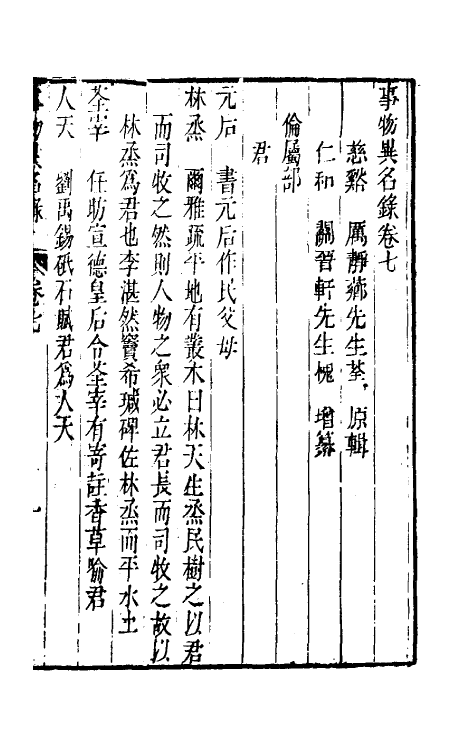 事物異名錄卷七
慈谿 厲靜薌先生荃 原輯
仁和 關晉軒先生槐 增纂
倫屬部
君
元后 書元后作民父母
林烝 爾雅疏平地有叢木曰林天生烝民樹之以君
而司牧之然則人物之衆必立君長而司牧之故以
林烝爲君也李湛然竇希瑊碑佐林烝而平水土
荃宰 任昉宣德皇后令荃宰有寄註香草喻君
人天 劉禹錫砥石賦君爲人天
事物異名錄 卷七